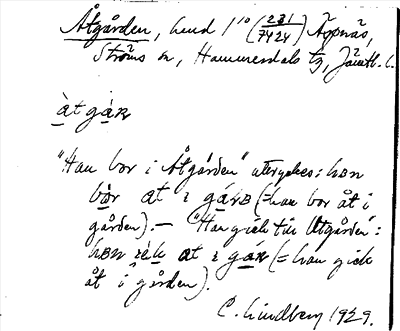 Åtgården, hemd 1/10 (281/7424) Äspnäs,
Ströms sn, Hammerdals tg, Jämtl. l.
àt gáʀ
"Han bor i Åtgården" uttryckes: hɷn
bòr at ɩ gárɷ (= han bor åt i
gården). — "Han gick till Utgården":
hɷn jék at ɩ gáʀ (= han gick
åt i gården).
C. Lindberg 1929.